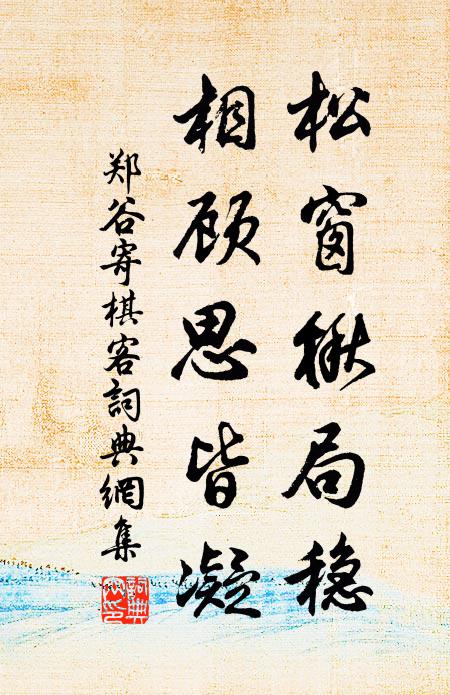 松窗楸局稳
相顾思皆凝
郑谷寄棋客詞典網集